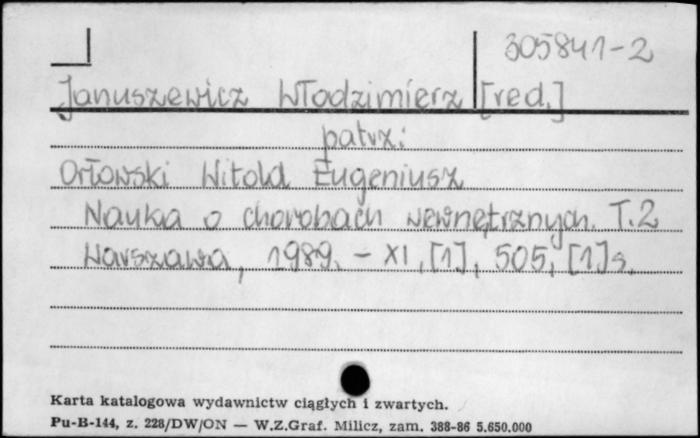 305841-2
Januszewicz Włodzimierz [red.]
patrz:
Orłowski Witold Eugeniusz
Nauka o chorobach wewnętrznych. T.2
Warszawa, 1989. - XI, [1], 505, [1] s.
Karta katalogowa wydawnictw ciągłych i zwartych.
Pu-B-144, z. 228/DW/ON — W.Z.Graf. Milicz, zam. 388-86 5.650.000